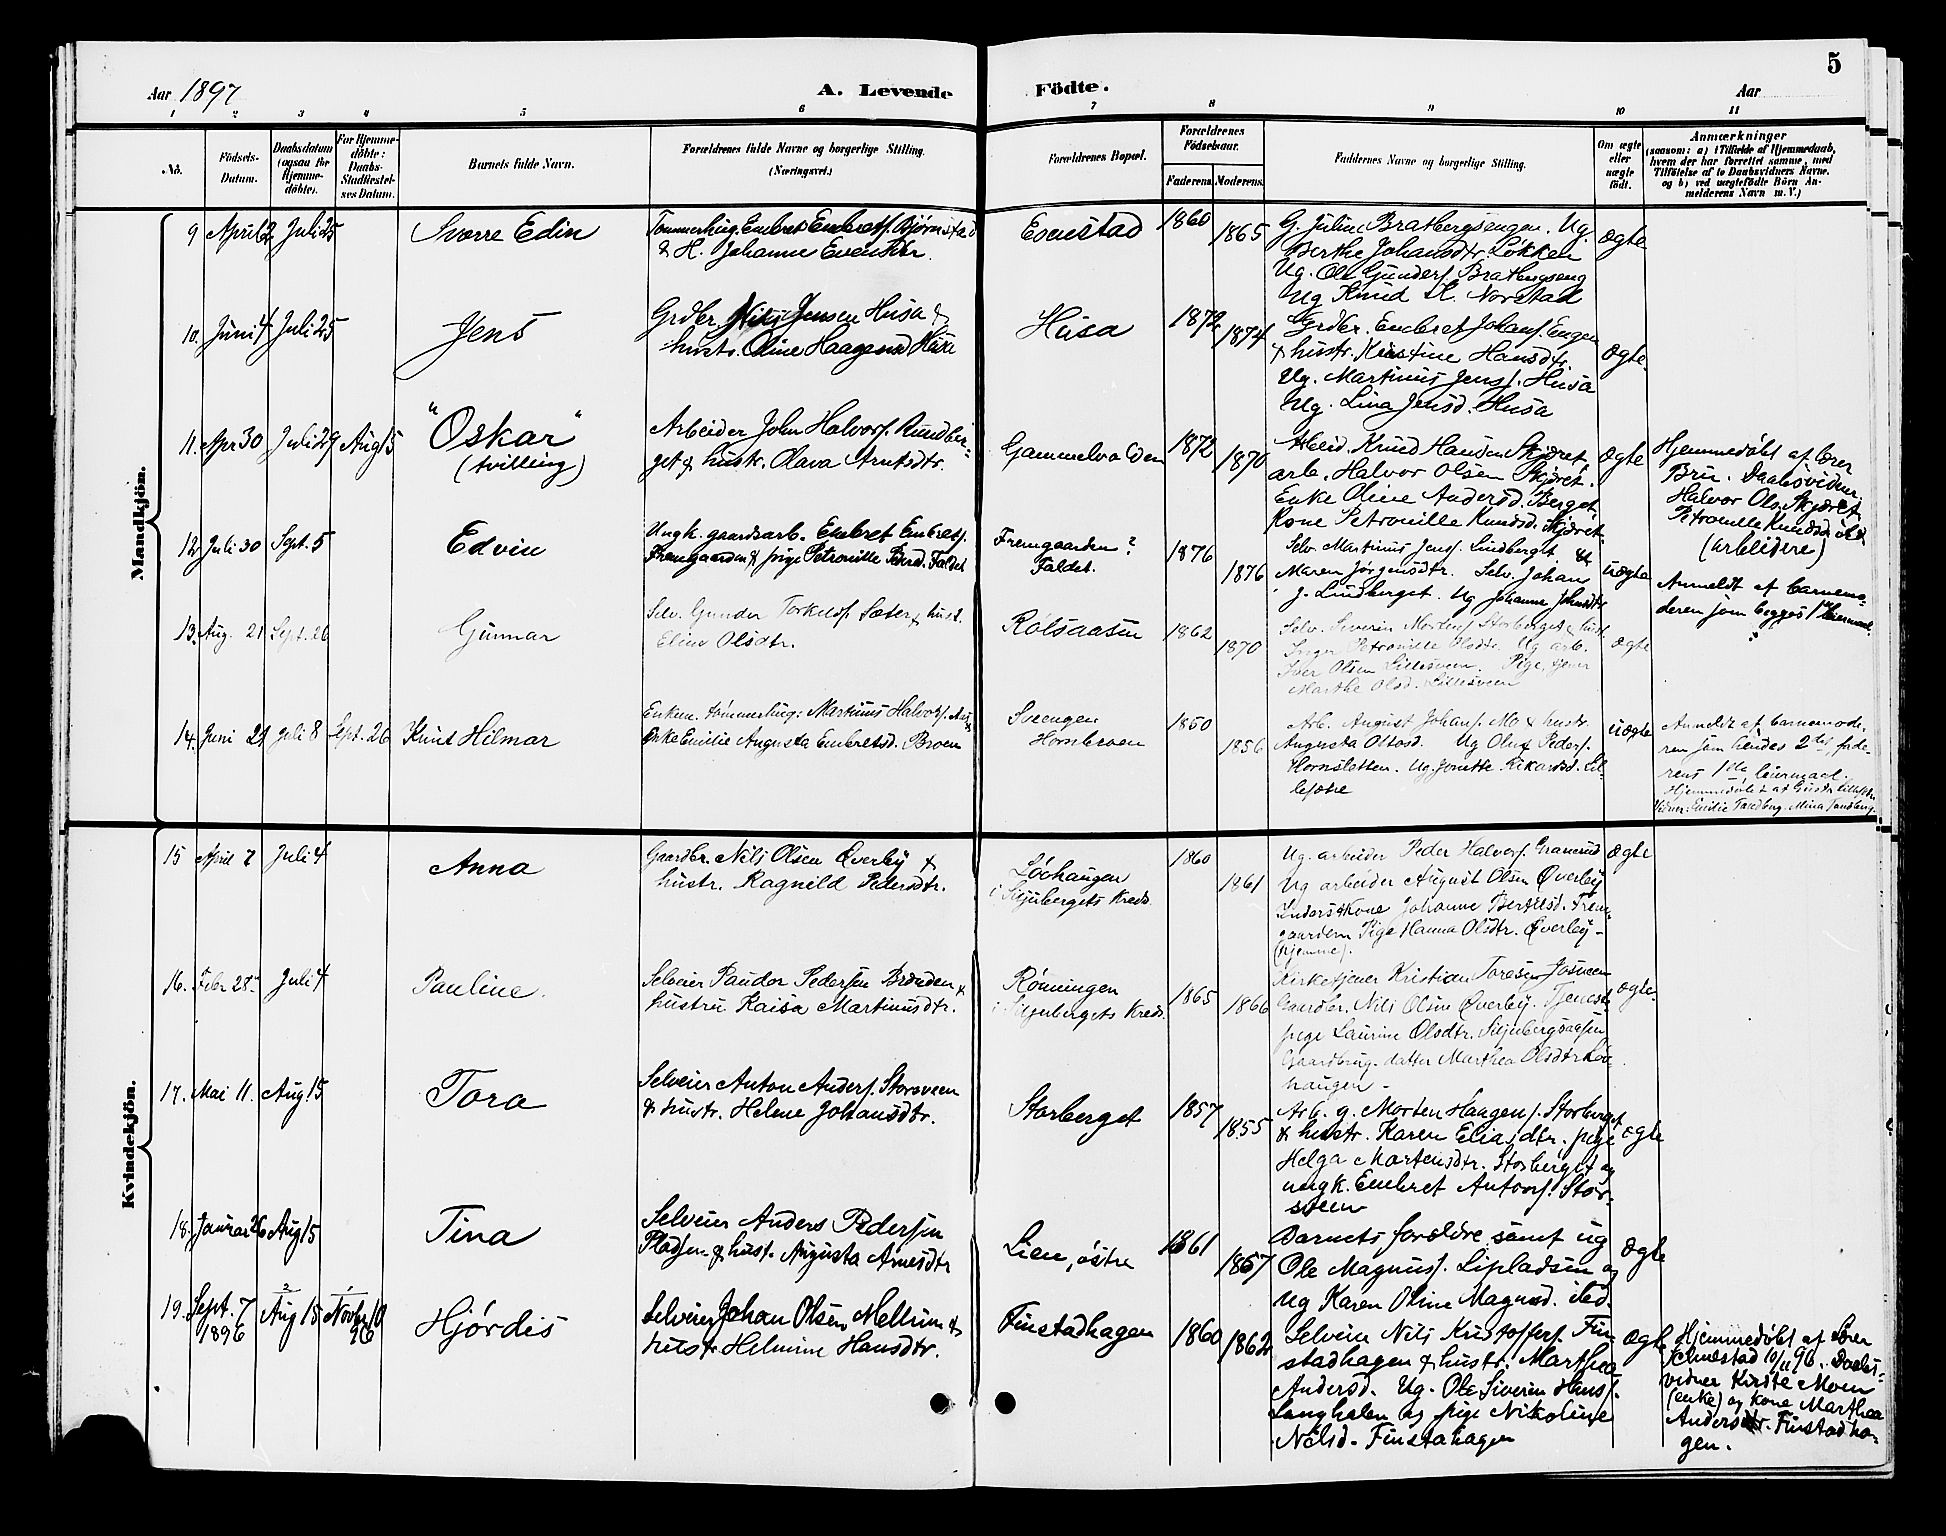 5
Aar 1897
A. Levende Födte.
Aar
1 2 3 4 5 6 7 8 9 10 11
No.
Födsels-Datum.
Daabsdatum (ogsaa for Hjemme-döbte).
For Hjemme-döbte: Daabs-Stadfæstel-ses Datum.
Barnets fulde Navn.
Forældrenes fulde Navne og borgerlige Stilling. (Næringsvei.)
Forældrenes Bopæl.
Forældrenes Födselsaar.
Faderens. Moderens.
Faddernes Navne og borgerlige Stilling.
Om ægte eller uægte født.
Anmærkninger
(saasom: a) i Tilfælde af Hjemmedaab, hvem der har forrettet samme, med Tilföielse af to Daabsvidners Navne. og b) ved uægtefödte Börn An-melderens Navn m. V.)
Mandkjön.
9 April 2 Juli 25
Sverre Edin
Tømmerhug. Embret Embretf. Bjørnstad
& H. Johanne Evensdtr.
Evenstad
1860
1865
G. Julius Bratbergsengen. Ug.
Berthe Johansdtr. Løkken
Ug. Ole Gunderf. Bratbergseng
Ug Knud H. Norstad
ægte
10. Juni 4 Juli 25
Jens
Grdbr Nils Jensen Husa &
hustr. Oline Haagensd Husa
Husa
1872
1874
Grdbr. Embret Johanf. Engen
& hustr. Kristine Hansdtr.
Ug. Martinus Jensf. Husa
Ug. Lina Jensd. Husa
ægte
11. Apr 30 Juli 29 Aug 15
"Oskar"
(tvilling)
Arbeider John Halvorf. Rundber-
get & hustr. Olava Arntsdtr.
Gammelvolden
1872
1870
Arbeid. Knud Hansen Skjæret
arb. Halvor Olsen Skjæret.
Enke Oline Andersd. Berget
Kone Petronille Knudsd. Skjæret
ægte
Hjemmedøbt af Lærer
Bru. Daabsvidner
Halvor Ols. Skjæret
Petronille Knudsd.
(arbeidere)
12. Juli 30 Sept. 5
Edvin
Ungk. gaardsarb. Embret Embretf.
Fremgaarden & pige Petronille Faldet
Fremgaarden?
Faldet.
1876
1876
Selv. Martinus Jensf. Lindberget &
Maren Jørgensdtr. Selv. Johan
J. Lindberget. Ug Johanne Johansdtr
uægte
Anmeldt af barnemo-
deren som begges 1ste leiermaal.
13. Aug. 21 Sept. 26
Gunnar
Selv. Gunder Torkelsf. Sæter & hust.
Eline Olsdtr.
Rotsaasen
1862
1870
Selv. Severin Mortenf. Storberget & hust
Inger Petronille Olsdtr. Ug arb.
Iver Olsen Lillesveen. Pige, tjener
Marthe Olsd. Lillesveen
ægte
14. Juni 21 Juli 8 Sept. 26
Knut Hilmar
Enkem. tømmerhug: Martinus Halvorf.
Enke Emilie Augusta Embretsd. Broen
Svængen
Hornbroen
1850
1856
Arb. August Johanf. Mo & hustr.
Augusta Ottosd. Ug Oluf Pederf.
Hornsletten. Ug. Jonette Rikardsd. Lil-
lesætre
uægte
Anmeldt af barnemode-
ren som hendes 2det, fade-
rens 1ste leiermaal.
Hjemmedøbt af
Vidner: Emilie Tandberg, Mina Tandberg
Kvindekjön.
15 April 7 Juli 4
Anna
Gaardbr. Nils Olsen Øverby &
hustr. Ragnild Pedersdtr.
Løvhaugen
i Siljubergets Kreds.
1860
1861
Ug. arbeider Peder Halvorf. Granerud
Ug arbeider August Olsen Øverby
Inderst kone Johanne Bertilsd. Frem-
gaarden Pige Hanna Olsdtr. Øverby -
(hjemme).
ægte
16. Febr 28de Juli 4
Pauline.
Selveier Paudor Pedersen Brænden &
hustru Raisa Martinusdtr.
Rønningen
i Siljubergets Kreds.
1865
1866
Kirketjener Kristian Toresen
Gaardbr. Nils Olsen Øverby. Tjeneste-
pige Laurine Olsdtr. Siljubergsaasen
Gaardbrug. datter Marthea Olsdtr Løv-
haugen -
ægte.
17. Mai 11. Aug 15
Tora
Selveier Anton Andersf. Storsveen
& hustr. Helene Johansdtr.
Storberget
1857
1855
Arb. g. Morten Haagenf. Storberget
& hustr. Karen Eliasdtr. pige
Helga Mortensdtr. Storberget og
ungk. Embret Antonf. Stor-
sveen
ægte
18. Januar 26 Aug 15
Tina
Selveier Anders Pedersen
Pladsen & hust. Augusta Arnesdtr
Lien, østre
1861
1867
Barnets forældre samt ug
Ole Magnusf. Lipladsen og
Ug Karen Oline Magnusd. ibd.
ægte
19. Sept. 7 1896
2 Aug 15
1 Novbr 10 96
Hjørdis
Selveier Johan Olsen Mellum &
hustr Helmine Hansdtr.
Finstadhagen
1860
1862
Selveier Nils Kristofferf. Fin-
stadhagen & hustr. Marthea
Andersd. Ug. Ole Siverin Hansf.
Langhalen og pige Nikoline
Nilsd. Finstahagen
ægte
Hjemmedøbt af Lærer
Schnestad 10/11 96. Daabs-
vidner Kirste Moen
(enke) og kone Marthea
Andersdtr. Finstadha-
gen.